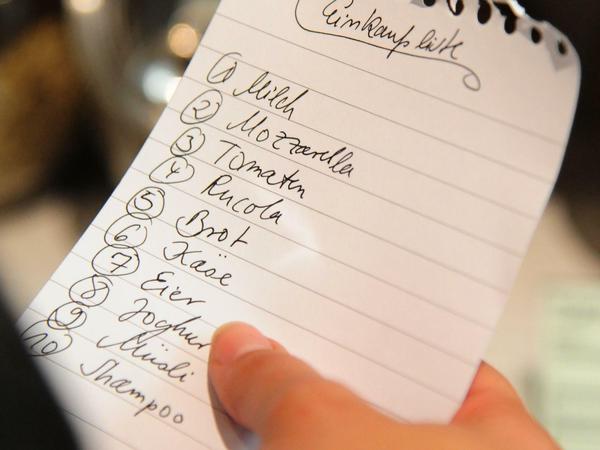 Einkaufsliste
1 Milch
2 Mozzarella
3 Tomaten
4 Rucola
5 Brot
6 Käse
7 Eier
8 Joghur
9 Müsli
10 Shampoo